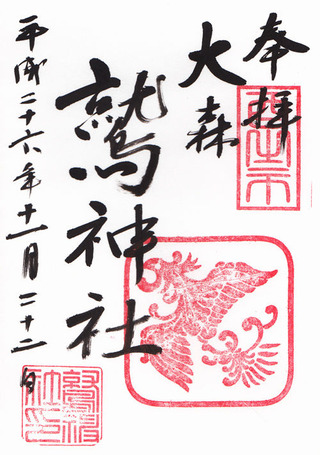 奉拝
大森
鷲神社
平成二十六年十一月二十二日